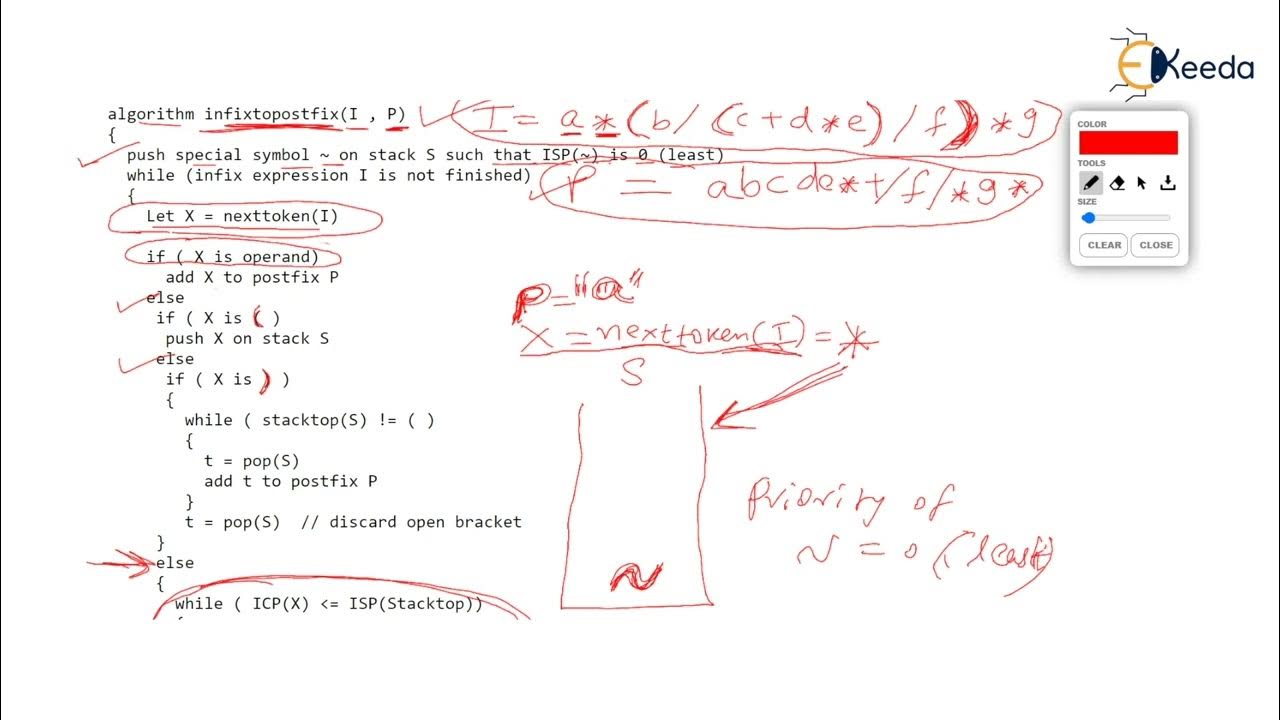 EKeeda
algorithm infixtopostfix(I , P)
I = a * (b / (c + d * e) / f) * g
{
push special symbol ~ on stack S such that ISP(~) is 0 (least)
while (infix expression I is not finished)
P = abcde*+/f/*g*
{
Let X = nexttoken(I)
if ( X is operand)
add X to postfix P
else
if ( X is ( )
push X on stack S
else
if ( X is ) )
{
while ( stacktop(S) != ( )
{
t = pop(S)
add t to postfix P
}
t = pop(S)  // discard open bracket
}
else
{
while ( ICP(X) <= ISP(Stacktop))
P = "a"
X = nexttoken(I) = *
S
~
Priority of
~ = 0 (least)
COLOR
TOOLS
SIZE
CLEAR CLOSE